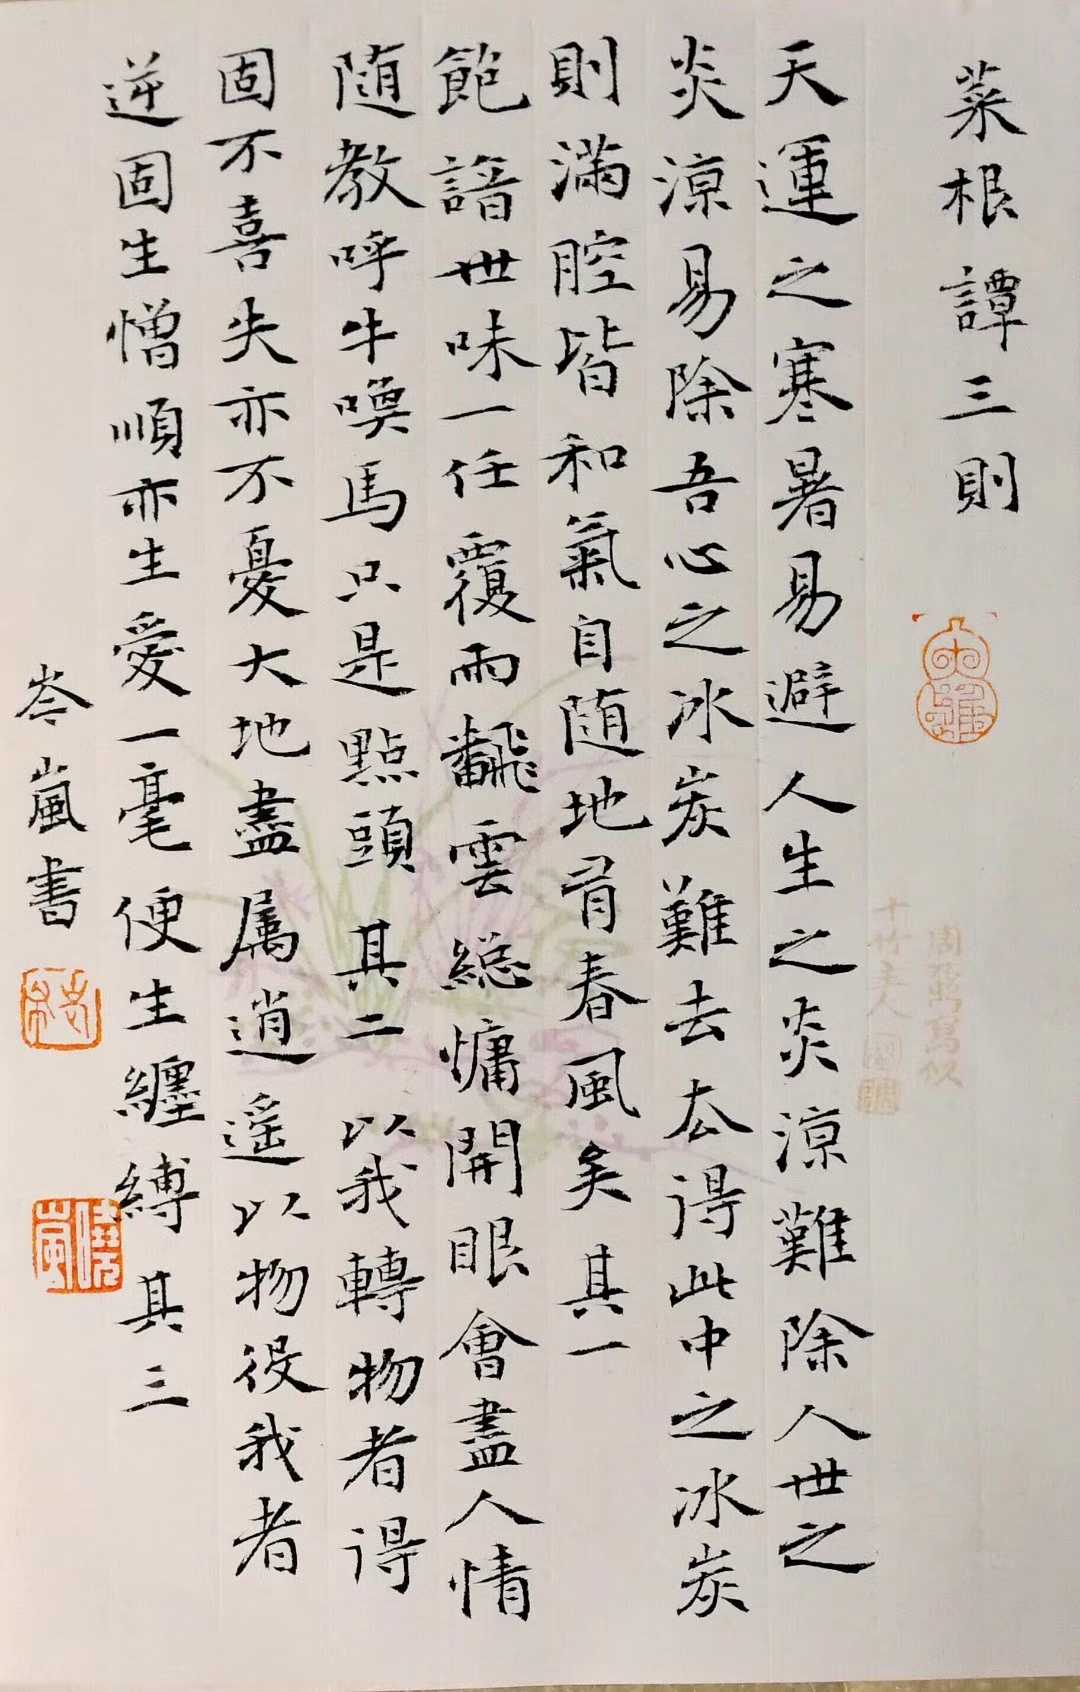 菜根譚三則
天運之寒暑易避人生之炎涼難除人世之
炎涼易除吾心之冰炭難去去得此中之冰炭
則滿腔皆和氣自随地有春風矣 其一
飽諳世味一任覆雨飜雲緫慵開眼會盡人情
随教呼牛喚馬只是點頭 其二 以我轉物者得
固不喜失亦不憂大地盡属逍遥以物役我者
逆固生憎順亦生愛一毫便生纏縛 其三
岑嵐書
十竹主人